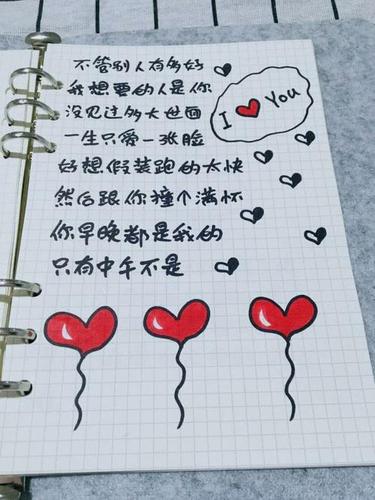 不管别人有多好
我想要的人是你
I ❤ You
没见过多大世面
一生只爱一张脸
好想假装跑的太快
然后跟你撞个满怀
你早晚都是我的
只有中午不是